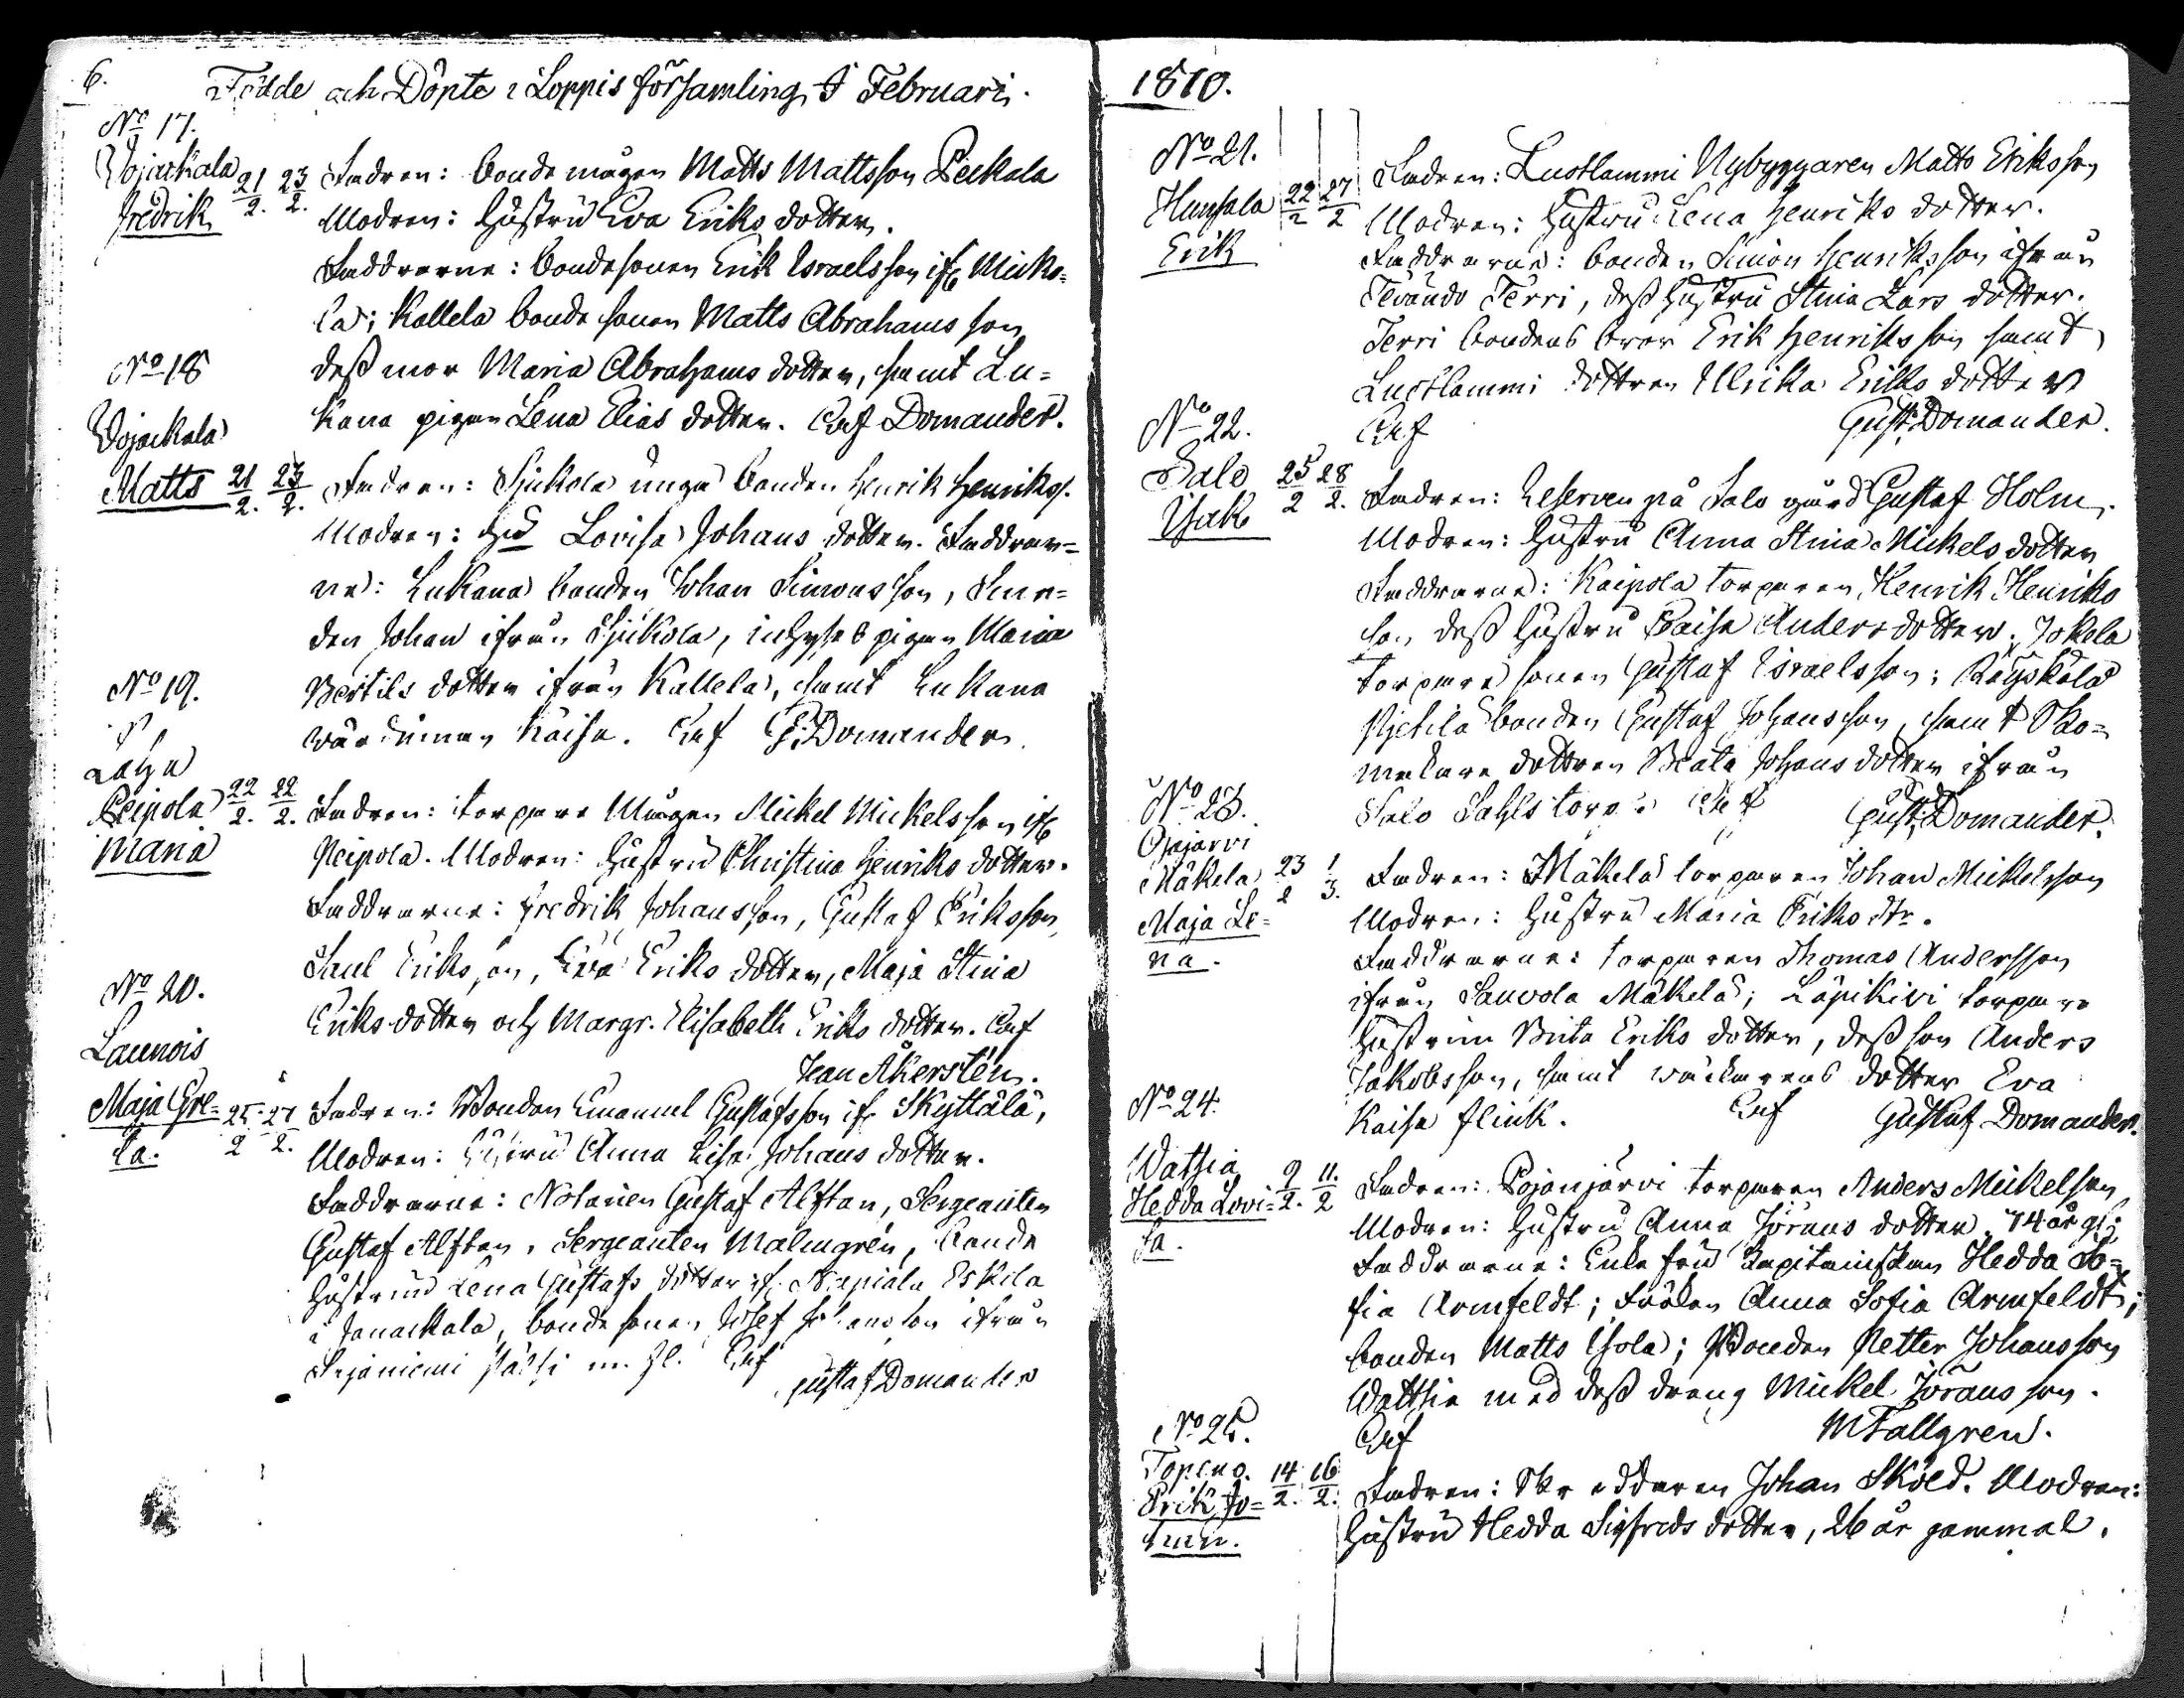 6.
Födde och Döpte i Loppis församling I Februarii.
No 17.
Wojackala
Fredrik
21/2. 23/2.
Fadren: bonde mågen Matts Mattsson Peckala
Modren: Hustru Eva Eriks dotter.
Faddrarne: bondesonen Erik Israelsson ifr Micko-
la; Kallela bonde sonen Matts Abrahams son
dess mor Maria Abrahams dotter, samt Lu-
kana pigan Lena Elias dotter. Conf Domander.
No 18
Wojackala
Matts 21/2. 23/2.
Fadren: Sjukola unga bonden Henrik Henrikss.
Modren: Hu Lovisa Johans dotter. Faddrar-
ne: Lukana bonden Johan Simonsson,
den Johan ifrån Sjukola, inhyses pigan Maria
Bertils dotter ifrån Kallela, samt Lukana
wärdinnan Kaisa. Conf G. Domander
No 19.
Peipola 22/2. 22/2.
Maria
Fadren: torpare Mågen Mickel Mickelsson ifr
Peipola. Modren: Hustru Christina Henriks dotter.
Faddrarne: Fredrik Johansson, Gustaf Eriksson,
Saul Eriksson, Eva Eriks dotter, Maja Stina
Eriks dotter och Margr. Elisabeth Eriks dotter. Conf
Joan Åkerstén.
No 20.
Launois
Maja Gre-
ta. 25/2 27/2.
Fadren: Bonden Emanuel Gustafsson ifr Skyttälä,
Modren: Hustru Anna Lisa Johans dotter.
Faddrarne: Notarien Gustaf Alftan, Sergeanten
Gustaf Alftan, Sergeanten Malmgrén, bonde
Hustrun Lena Gustafs dotter if. Eskila
i Janackala, bonde sonen Josef Johansson ifrån
Sajaniemi m. fl. Conf
Gustaf Domander
1810.
No 21.
Hunsala 22/2 27/2
Erik
Fadren: Luotlammi Nybyggaren Matts Eriksson
Modren: Hustru Lena Henriks dotter.
Faddrarne: bonden Simon Henriksson ifrån
Tevändö Terri, dess Hustru Stina Lars dotter.
Terri bondens bror Erik Henriksson samt
Luotlammi dottren Ulrika Eriks dotter
Conf Gust: Domander.
No 22.
Salo 25/2 28/2.
Isak
Fadren: på Salo gård Gustaf Holm.
Modren: Hustru Anna Stina Mickels dotter
Faddrarne: Kaipola torparen Henrik Henriks
son, dess Hustru Caisa Anders dotter. Jokela
torpare sonen Gustaf Israelsson; Räyskälä
Pietilä bonden Gustaf Johansson, samt Sko-
makare dottren Beata Johans dotter ifrån
Salo Sahls torp. Conf Gust: Domander.
No 23.
Ojajärvi
Mäkelä 23/2 1/3.
Maja Le-
na.
Fadren: Mäkelä torparen Johan Mickelsson
Modren: Hustru Maria Eriks dtr.
Faddrarne: torparen Thomas Andersson
ifrån Sauvola Mäkelä; Läpikivi torpare
Hustrun Brita Eriks dotter, dess son Anders
Jakobsson, samt dotter Eva
Kaisa Flink. Conf Gustaf Domander.
No 24.
Watsia 9/2. 11./2
Hedda Lovi-
sa.
Fadren: Pojanjärvi torparen Anders Mickelsson
Modren: Hustru Anna Jörans dotter. 44 år gl.
Faddrarne: Enke fru Kapitenskan Hedda So-
fia Armfeldt; Fröken Anna Sofia Armfeldt;
bonden Matts Isola; Bonden Petter Johansson
Watthia med dess dreng Mickel Jörans son.
Conf M Fallgren.
No 25.
Topeno. 14/2. 16/2.
Erik Jo-
han.
Fadren: Skreddaren Johan Sköld. Modren:
Hustru Hedda Sigfreds dotter, 26 år gammal.